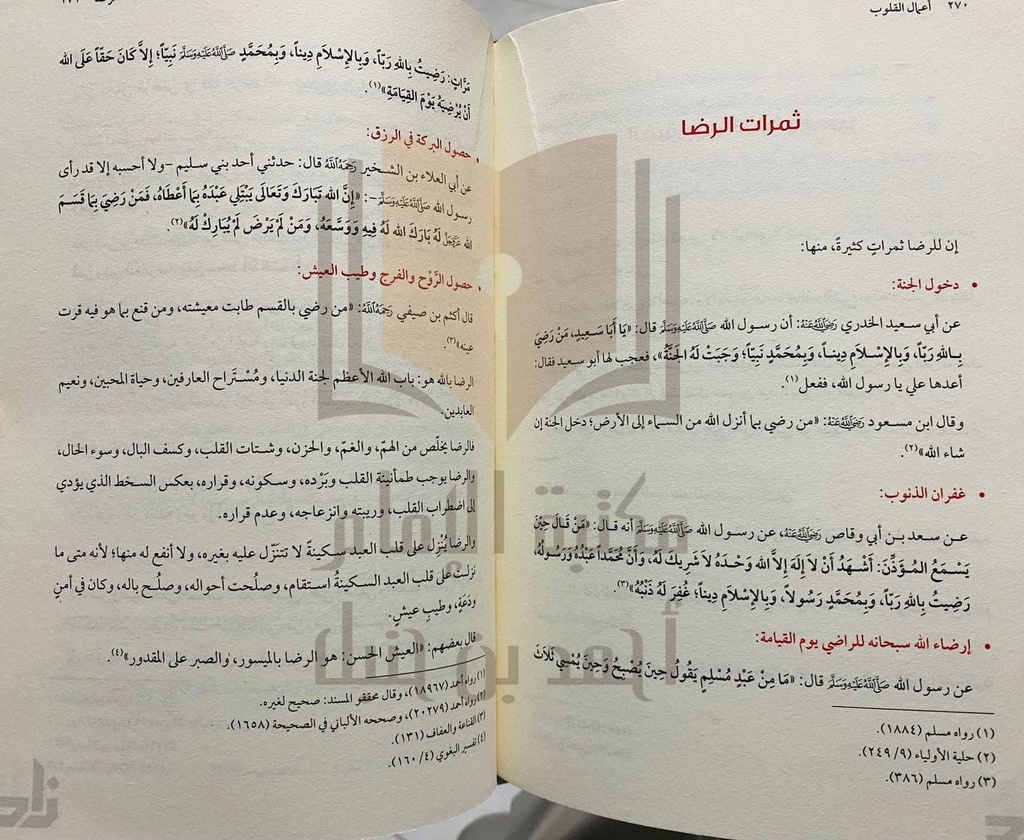 ٢٧٠ أعمال القلوب
ثمرات الرضا
إن للرضا ثمراتٍ كثيرةً، منها:
• دخول الجنة:
عن أبي سعيد الخدري رَضِيَاللَّهُعَنْهُ: أن رسول الله صَلَّىاللَّهُعَلَيْهِوَسَلَّمَ قال: «يَا أَبَا سَعِيدٍ، مَنْ رَضِيَ
بِاللهِ رَبّاً، وَبِالإِسْلَامِ دِيناً، وَبِمُحَمَّدٍ نَبِيّاً؛ وَجَبَتْ لَهُ الجَنَّةُ»، فعجب لها أبو سعيد فقال:
أعدها علي يا رسول الله، ففعل(١).
وقال ابن مسعود رَضِيَاللَّهُعَنْهُ: «من رضي بما أنزل الله من السماء إلى الأرض؛ دخل الجنة إن
شاء الله»(٢).
• غفران الذنوب:
عن سعد بن أبي وقاص رَضِيَاللَّهُعَنْهُ، عن رسول الله صَلَّىاللَّهُعَلَيْهِوَسَلَّمَ أنه قال: «مَنْ قَالَ حِيْنَ
يَسْمَعُ المُؤَذِّنَ: أَشْهَدُ أَنْ لاَ إِلَهَ إِلاَّ الله وَحْدَهُ لاَ شَرِيكَ لَهُ، وَأَنَّ مُحَمَّداً عَبْدُهُ وَرَسُولُهُ،
رَضِيْتُ بِاللهِ رَبّاً، وَبِمُحَمَّدٍ رَسُولاً، وَبِالإِسْلاَمِ دِيناً؛ غُفِرَ لَهُ ذَنْبُهُ»(٣).
• إرضاء الله سبحانه للراضي يوم القيامة:
عن رسول الله صَلَّىاللَّهُعَلَيْهِوَسَلَّمَ قال: «مَا مِنْ عَبْدٍ مُسْلِمٍ يَقُولُ حِينَ يُصْبِحُ وَحِينَ يُمْسِي ثَلَاثَ
(١) رواه مسلم (١٨٨٤).
(٢) حلية الأولياء (٢٤٩/٩).
(٣) رواه مسلم (٣٨٦).
مَرَّاتٍ: رَضِيتُ بِاللهِ رَبّاً، وَبِالإِسْلاَمِ دِيناً، وَبِمُحَمَّدٍ صَلَّىاللَّهُعَلَيْهِوَسَلَّمَ نَبِيّاً؛ إِلاَّ كَانَ حَقّاً عَلَى الله
أَنْ يُرْضِيَهُ يَوْمَ القِيَامَةِ»(١).
• حصول البركة في الرزق:
عن أبي العلاء بن الشخير رَحِمَهُاللَّهُ قال: حدثني أحد بني سليم -ولا أحسبه إلا قد رأى
رسول الله صَلَّىاللَّهُعَلَيْهِوَسَلَّمَ-: «إِنَّ الله تَبَارَكَ وَتَعَالَى يَبْتَلِي عَبْدَهُ بِمَا أَعْطَاهُ، فَمَنْ رَضِيَ بِمَا قَسَمَ
الله عَزَّوَجَلَّ لَهُ بَارَكَ الله لَهُ فِيهِ وَوَسَّعَهُ، وَمَنْ لَمْ يَرْضَ لَمْ يُبَارِكْ لَهُ»(٢).
• حصول الرَّوْح والفرج وطيب العيش:
قال أكثم بن صيفي رَحِمَهُاللَّهُ: «من رضي بالقسم طابت معيشته، ومن قنع بما هو فيه قرت
عينه»(٣).
الرضا بالله هو: باب الله الأعظم لجنة الدنيا، ومُسْتَراح العارفين، وحياة المحبين، ونعيم
العابدين.
فالرضا يخلّص من الهمّ، والغمّ، والحزن، وشتات القلب، وكسف البال، وسوء الحال،
والرضا يوجب طمأنينة القلب وبَرْده، وسكونه، وقراره، بعكس السخط الذي يؤدي
إلى اضطراب القلب، وريبته وانزعاجه، وعدم قراره.
والرضا يُنْزِل على قلب العبد سكينةً لا تتنزّل عليه بغيره، ولا أنفع له منها؛ لأنه متى ما
نزلت على قلب العبد السكينةُ استقام، وصلُحت أحواله، وصلُح باله، وكان في أمنٍ
ودَعَةٍ، وطيبِ عيشٍ.
قال بعضهم: «العيش الحسن: هو الرضا بالميسور، والصبر على المقدور»(٤).
(١) رواه أحمد (١٨٩٦٧)، وقال محققو المسند: صحيح لغيره.
(٢) رواه أحمد (٢٠٢٧٩)، وصححه الألباني في الصحيحة (١٦٥٨).
(٣) القناعة والعفاف (١٣١).
(٤) تفسير البغوي (١٦٠/٤).
مكتبة الإمام
أحمد بن حنبل